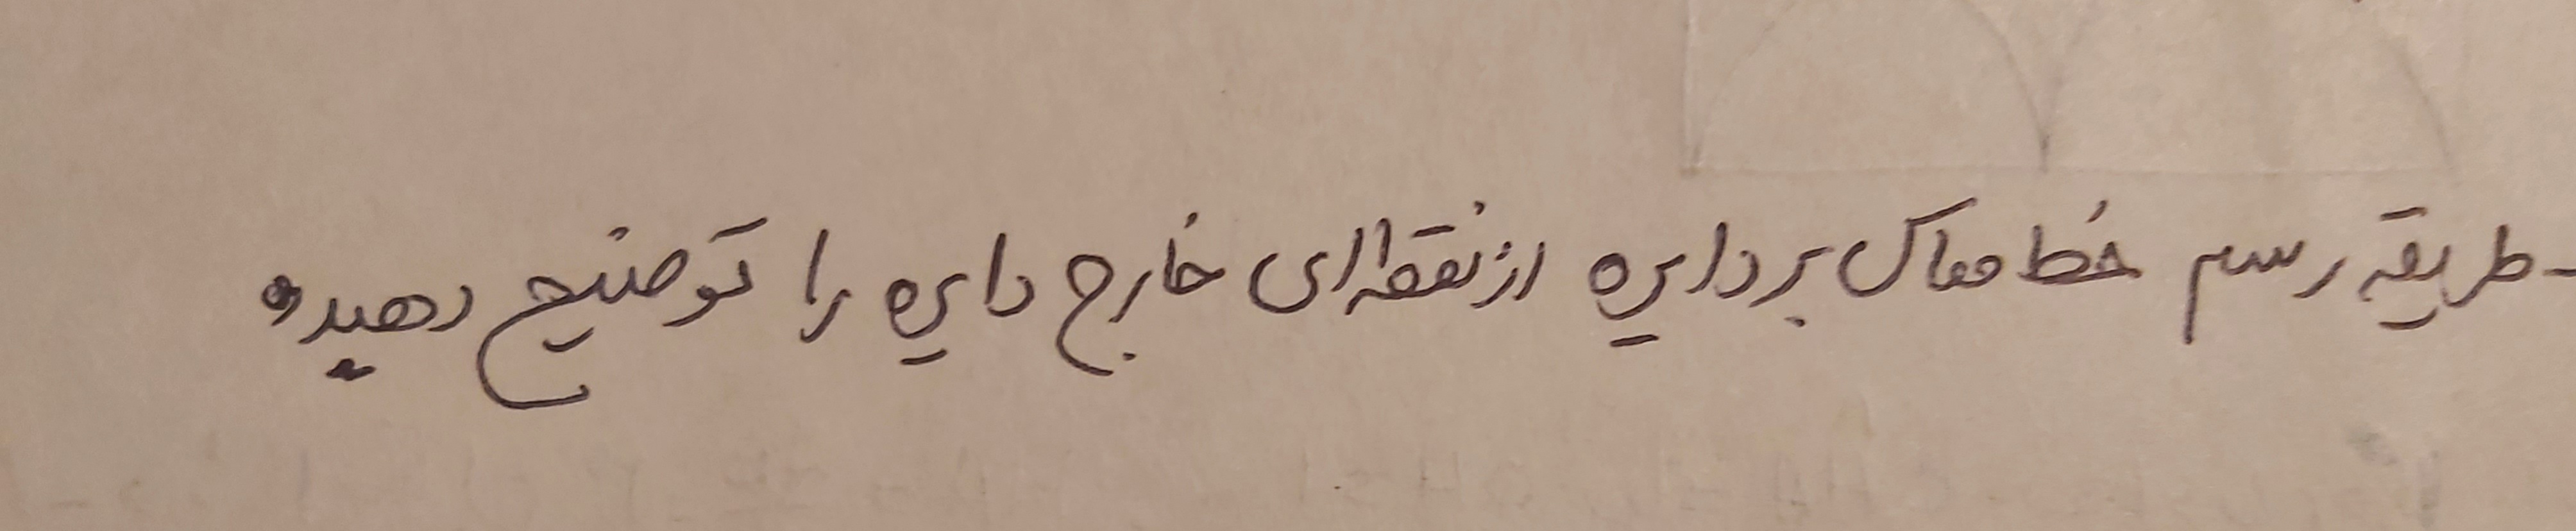 - طریقه رسم خط مماس بر دایره از نقطه‌ای خارج دایره را توضیح دهید.